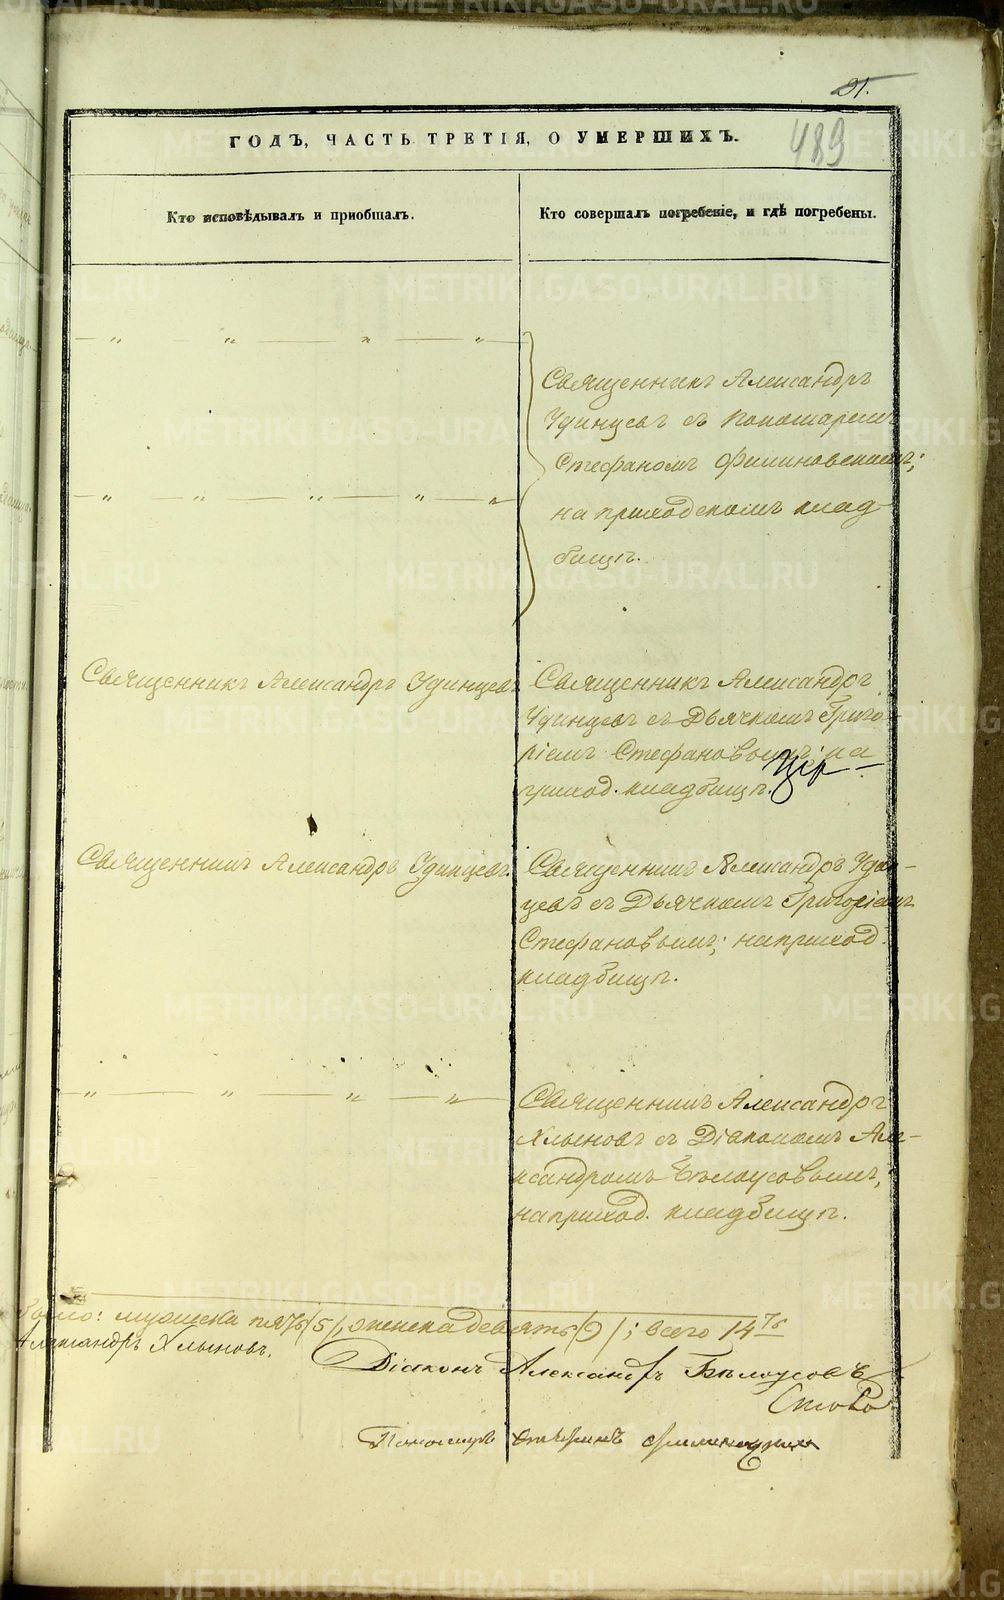 21.
489
ГОДЪ, ЧАСТЬ ТРЕТІЯ, О УМЕРШИХЪ.
Кто исповѣдывалъ и пріобщалъ.
Кто совершалъ погребеніе, и гдѣ погребены.
Священникъ Александръ
Удинцевъ съ Пономаремъ
Стефаномъ Филиновскимъ;
на приходскомъ клад-
бищѣ.
Священникъ Александръ Удинцевъ
Священникъ Александръ
Удинцевъ съ Дьячкомъ Григо-
ріемъ Стефановымъ; на
приход. кладбищѣ.
Священникъ Александръ Удинцевъ.
Священникъ Александръ Удин-
цевъ съ Дьячкомъ Григоріемъ
Стефановымъ; на приход.
кладбищѣ.
Священникъ Александръ
Хлыновъ съ Діакономъ Але-
ксандромъ Бѣлоусовымъ;
на приход. кладбищѣ.
было: мужеска пять /5/, женска девять /9/; всего 14ть
Александръ Хлыновъ.
Діаконъ Александръ Бѣлоусовъ
Пономарь Стефанъ
METRIKI.GASO-URAL.RU